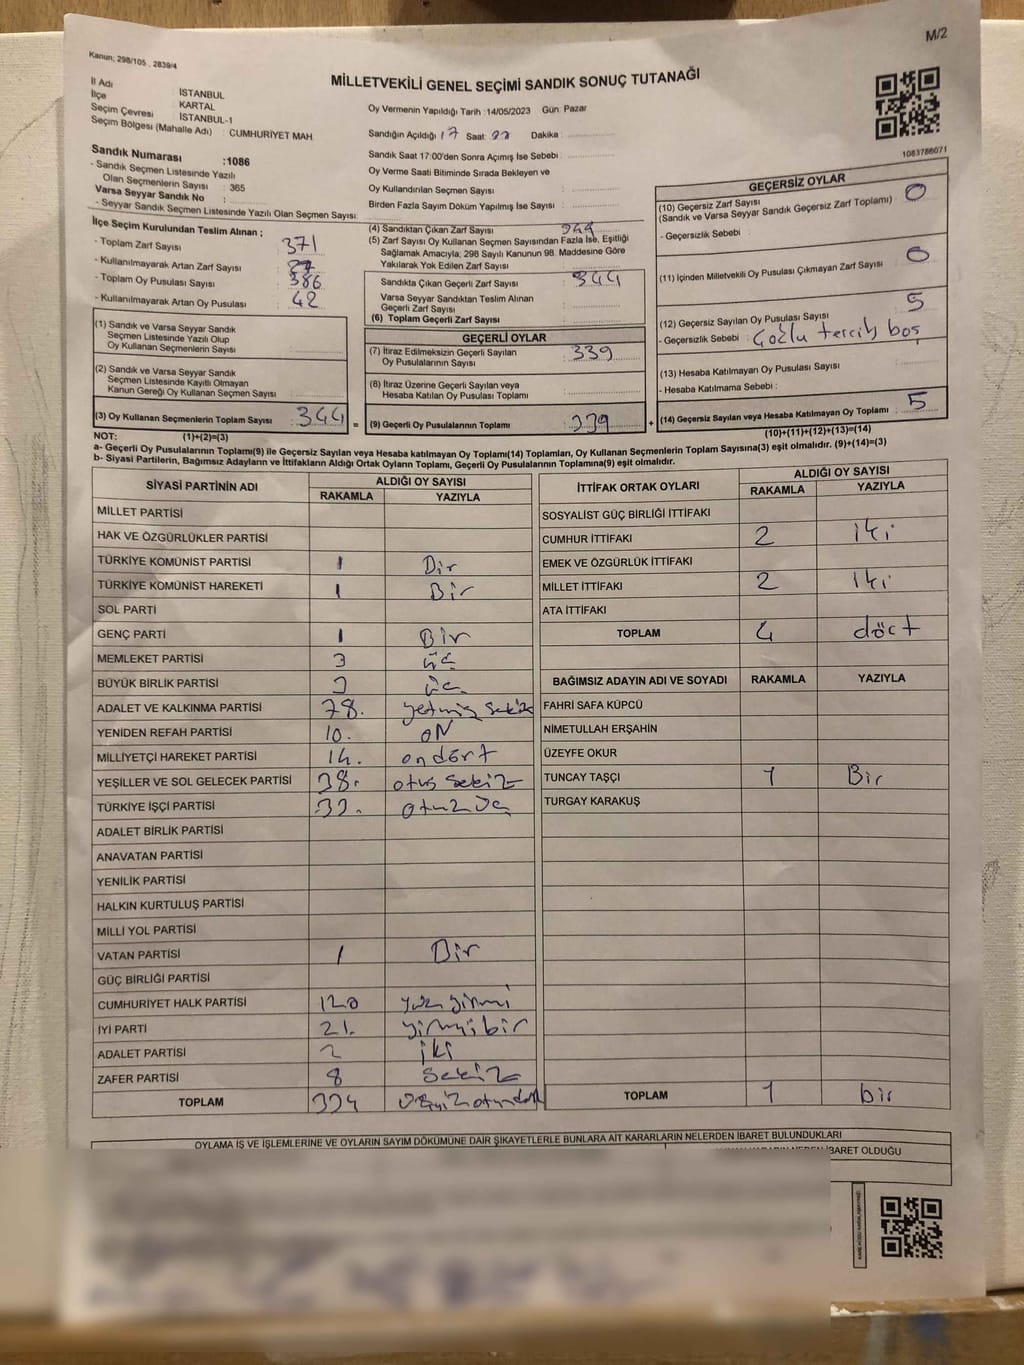 M/2
Kanun; 298/105 , 2839/4
MİLLETVEKİLİ GENEL SEÇİMİ SANDIK SONUÇ TUTANAĞI
İl Adı : İSTANBUL
İlçe : KARTAL
Seçim Çevresi : İSTANBUL-1
Seçim Bölgesi (Mahalle Adı) : CUMHURİYET MAH.
Oy Vermenin Yapıldığı Tarih :14/05/2023 Gün: Pazar
Sandığın Açıldığı 17 Saat: Dakika :
Sandık Saat 17:00'den Sonra Açımış İse Sebebi :
Oy Verme Saati Bitiminde Sırada Bekleyen ve
Oy Kullandırılan Seçmen Sayısı :
Birden Fazla Sayım Döküm Yapılmış İse Sayısı :
1083786071
Sandık Numarası :1086
- Sandık Seçmen Listesinde Yazılı
Olan Seçmenlerin Sayısı : 365
Varsa Seyyar Sandık No :
- Seyyar Sandık Seçmen Listesinde Yazılı Olan Seçmen Sayısı:
İlçe Seçim Kurulundan Teslim Alınan ;
- Toplam Zarf Sayısı 371
- Kullanılmayarak Artan Zarf Sayısı 27
- Toplam Oy Pusulası Sayısı 386
- Kullanılmayarak Artan Oy Pusulası 42
(1) Sandık ve Varsa Seyyar Sandık
Seçmen Listesinde Yazılı Olup
Oy Kullanan Seçmenlerin Sayısı
(2) Sandık ve Varsa Seyyar Sandık
Seçmen Listesinde Kayıtlı Olmayan
Kanun Gereği Oy Kullanan Seçmen Sayısı
(3) Oy Kullanan Seçmenlerin Toplam Sayısı 344
(4) Sandıktan Çıkan Zarf Sayısı 344
(5) Zarf Sayısı Oy Kullanan Seçmen Sayısından Fazla İse, Eşitliği
Sağlamak Amacıyla, 298 Sayılı Kanunun 98. Maddesine Göre
Yakılarak Yok Edilen Zarf Sayısı :
Sandıkta Çıkan Geçerli Zarf Sayısı : 344
Varsa Seyyar Sandıktan Teslim Alınan
Geçerli Zarf Sayısı :
(6) Toplam Geçerli Zarf Sayısı :
GEÇERLİ OYLAR
(7) İtiraz Edilmeksizin Geçerli Sayılan
Oy Pusulalarının Sayısı : 339
(8) İtiraz Üzerine Geçerli Sayılan veya
Hesaba Katılan Oy Pusulası Toplamı :
= (9) Geçerli Oy Pusulalarının Toplamı : 339 +
GEÇERSİZ OYLAR
(10) Geçersiz Zarf Sayısı 0
(Sandık ve Varsa Seyyar Sandık Geçersiz Zarf Toplamı) :
- Geçersizlik Sebebi :
(11) İçinden Milletvekili Oy Pusulası Çıkmayan Zarf Sayısı : 0
(12) Geçersiz Sayılan Oy Pusulası Sayısı : 5
- Geçersizlik Sebebi : Çoğlu tercih, boş
(13) Hesaba Katılmayan Oy Pusulası Sayısı :
- Hesaba Katılmama Sebebi :
(14) Geçersiz Sayılan veya Hesaba Katılmayan Oy Toplamı : 5
NOT: (1)+(2)=(3)
(10)+(11)+(12)+(13)=(14)
a- Geçerli Oy Pusulalarının Toplamı(9) ile Geçersiz Sayılan veya Hesaba katılmayan Oy Toplamı(14) Toplamları, Oy Kullanan Seçmenlerin Toplam Sayısına(3) eşit olmalıdır. (9)+(14)=(3)
b- Siyasi Partilerin, Bağımsız Adayların ve İttifakların Aldığı Ortak Oyların Toplamı, Geçerli Oy Pusulalarının Toplamına(9) eşit olmalıdır.
SİYASİ PARTİNİN ADI ALDIĞI OY SAYISI
RAKAMLA YAZIYLA
MİLLET PARTİSİ
HAK VE ÖZGÜRLÜKLER PARTİSİ
TÜRKİYE KOMÜNİST PARTİSİ 1 Bir
TÜRKİYE KOMÜNİST HAREKETİ 1 Bir
SOL PARTİ
GENÇ PARTİ 1 Bir
MEMLEKET PARTİSİ 3 üç
BÜYÜK BİRLİK PARTİSİ 3 üç
ADALET VE KALKINMA PARTİSİ 78. yetmiş sekiz
YENİDEN REFAH PARTİSİ 10. ON
MİLLİYETÇİ HAREKET PARTİSİ 14. ondört
YEŞİLLER VE SOL GELECEK PARTİSİ 38. otuz sekiz
TÜRKİYE İŞÇİ PARTİSİ 33. otuz üç
ADALET BİRLİK PARTİSİ
ANAVATAN PARTİSİ
YENİLİK PARTİSİ
HALKIN KURTULUŞ PARTİSİ
MİLLİ YOL PARTİSİ
VATAN PARTİSİ 1 Bir
GÜÇ BİRLİĞİ PARTİSİ
CUMHURİYET HALK PARTİSİ 120 yüz yirmi
İYİ PARTİ 21. yirmibir
ADALET PARTİSİ 2 iki
ZAFER PARTİSİ 8 sekiz
TOPLAM 334
İTTİFAK ORTAK OYLARI ALDIĞI OY SAYISI
RAKAMLA YAZIYLA
SOSYALİST GÜÇ BİRLİĞİ İTTİFAKI
CUMHUR İTTİFAKI 2 iki
EMEK VE ÖZGÜRLÜK İTTİFAKI
MİLLET İTTİFAKI 2 iki
ATA İTTİFAKI
TOPLAM 4 dört
BAĞIMSIZ ADAYIN ADI VE SOYADI RAKAMLA YAZIYLA
FAHRİ SAFA KÜPCÜ
NİMETULLAH ERŞAHİN
ÜZEYFE OKUR
TUNCAY TAŞÇI 1 Bir
TURGAY KARAKUŞ
TOPLAM 1 bir
OYLAMA İŞ VE İŞLEMLERİNE VE OYLARIN SAYIM DÖKÜMÜNE DAİR ŞİKAYETLERLE BUNLARA AİT KARARLARIN NELERDEN İBARET BULUNDUKLARI
İBARET OLDUĞU